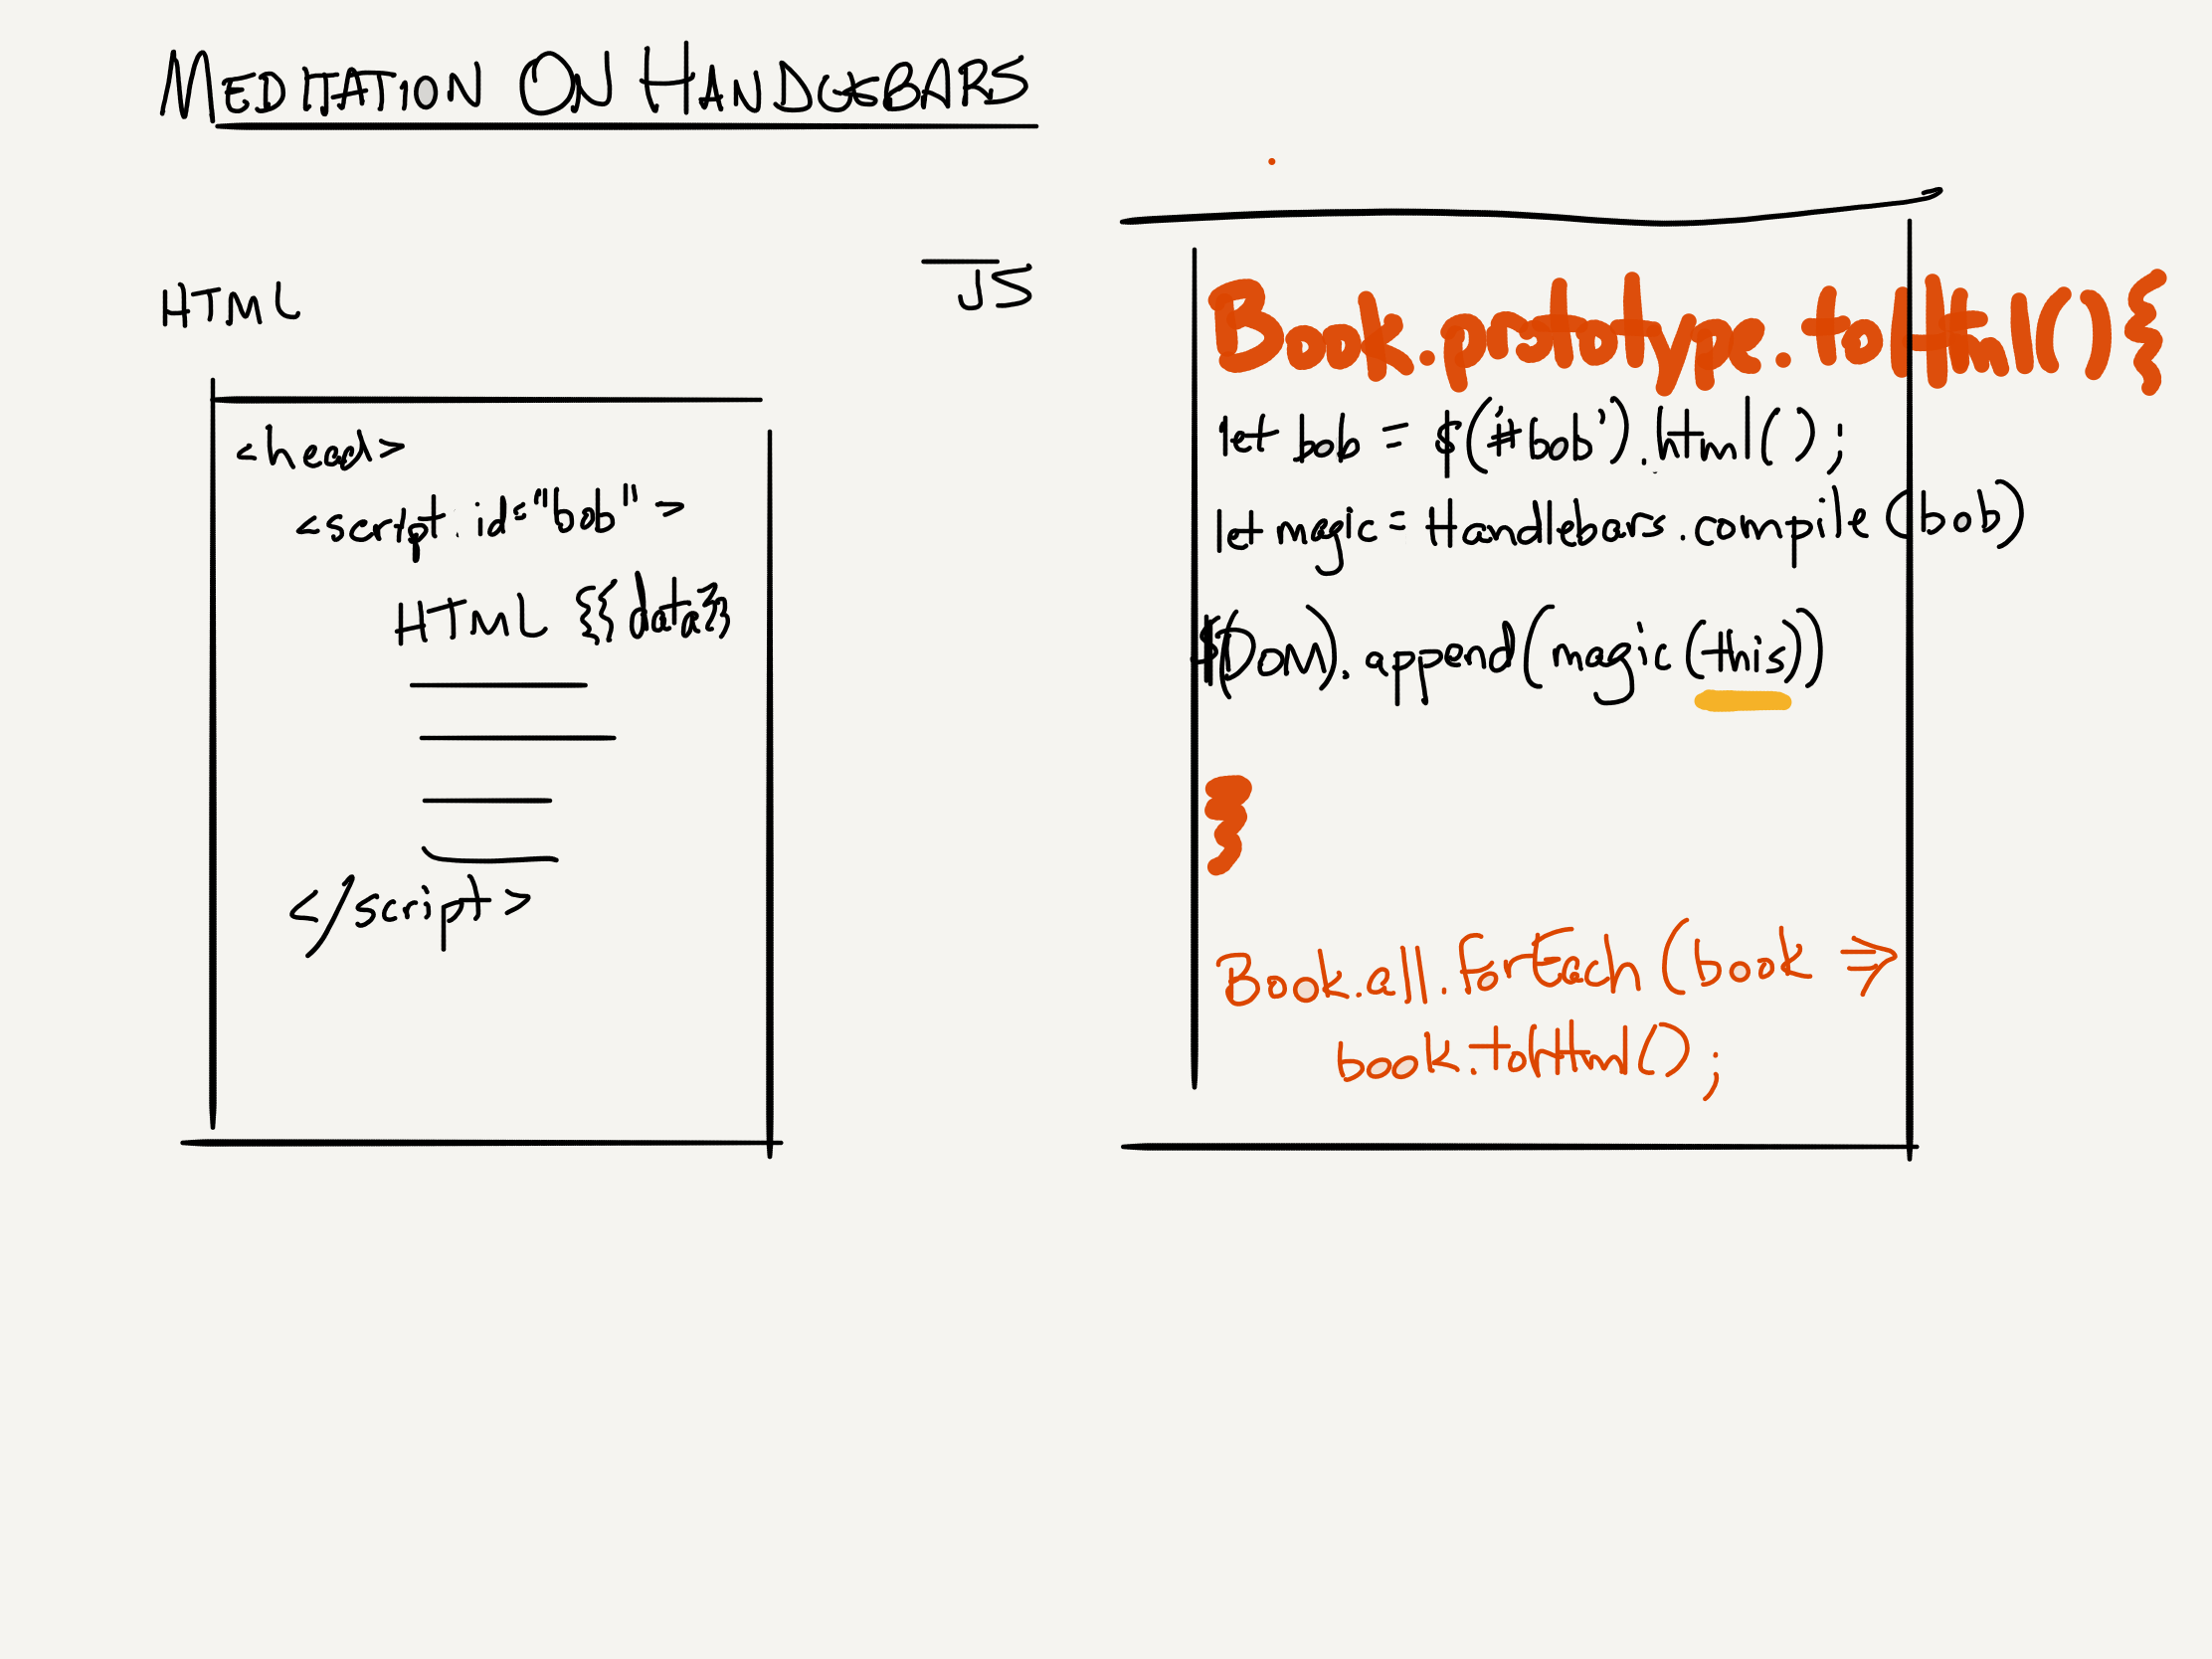 MEDITATION ON HANDLEBARS
HTML
<head>
<script id="bob">
HTML {{data}}
</script>
JS
Book.prototype.toHtml() {
let bob = $('#bob').html();
let magic = Handlebars.compile(bob)
$(DOM).append(magic(this))
}
Book.all.forEach(book =>
book.toHtml();